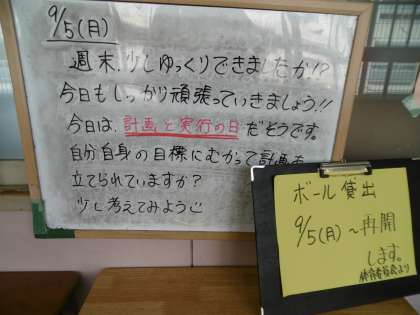 9/5(月)
週末、少しゆっくりできましたか!?
今日もしっかり頑張っていきましょう!!
今日は、計画と実行の日だそうです。
自分自身の目標にむかって計画を
立てられていますか?
少し考えてみよう☺
ボール貸出
9/5(月)～再開
します。
体育委員会より